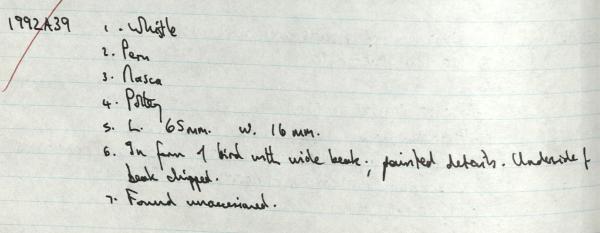 1992A39 1. Whistle
2. Peru
3. Nasca
4. Pottery
5. L. 65mm. W. 16mm.
6. In form of bird with wide beak; painted details. Underside of
beak chipped.
7. Found unaccessioned.